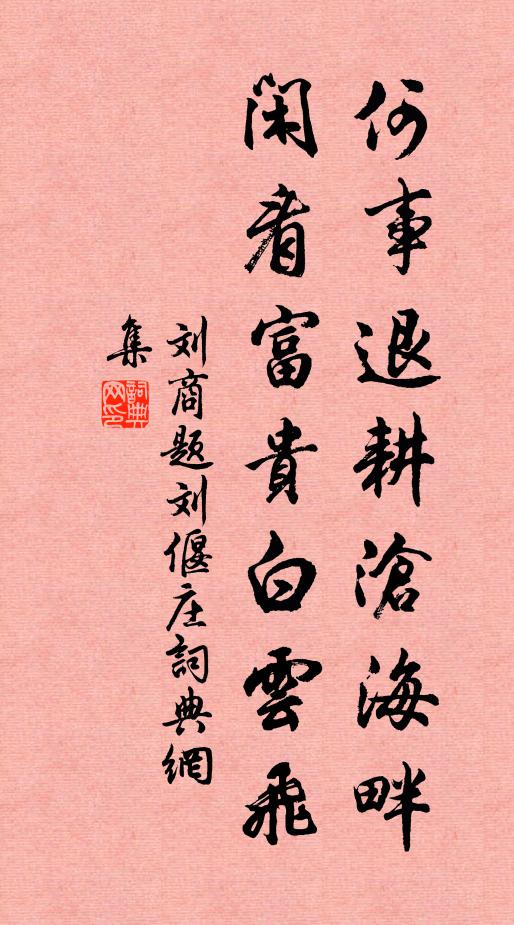 何事退耕滄海畔
閑看富貴白雲飛
刘商題刘偃庄詞典網
集
詞典網印